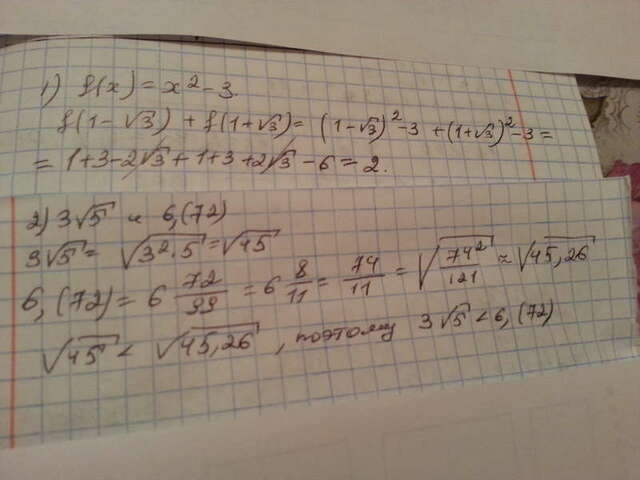 1) f(x) = x² - 3.
f(1 - √3) + f(1 + √3) = (1 - √3)² - 3 + (1 + √3)² - 3 =
= 1 + 3 - 2√3 + 1 + 3 + 2√3 - 6 = 2.
2) 3√5 и 6,(72)
3√5 = √(3²·5) = √45
6,(72) = 6 72/99 = 6 8/11 = 74/11 = √(74²/121) ≈ √45,26
√45 < √45,26, поэтому 3√5 < 6,(72)